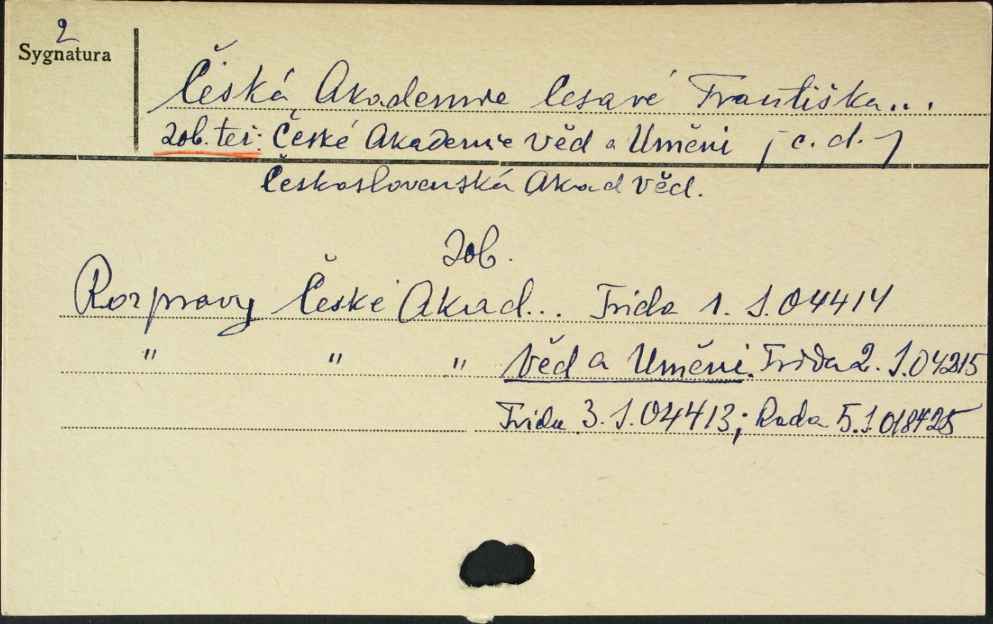 2
Sygnatura
Česká Akademie Cesaré Františka...
zob. też: České Akademie Věd a Uměni (c. d.)
Československá Akad Věd.
zob.
Rozpravy České Akad... Trida 1. S.04414
" " " Věd a Uměni. Trida 2. S.04215
Trida 3. S.04413; Rada 5. S.018425